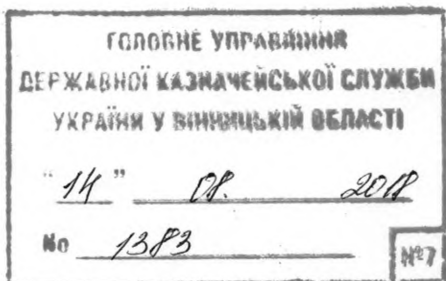 ГОЛОВНЕ УПРАВЛІННЯ
ДЕРЖАВНОЇ КАЗНАЧЕЙСЬКОЇ СЛУЖБИ
УКРАЇНИ У ВІННИЦЬКІЙ ОБЛАСТІ
"14" 08. 2018
№ 1383
№7